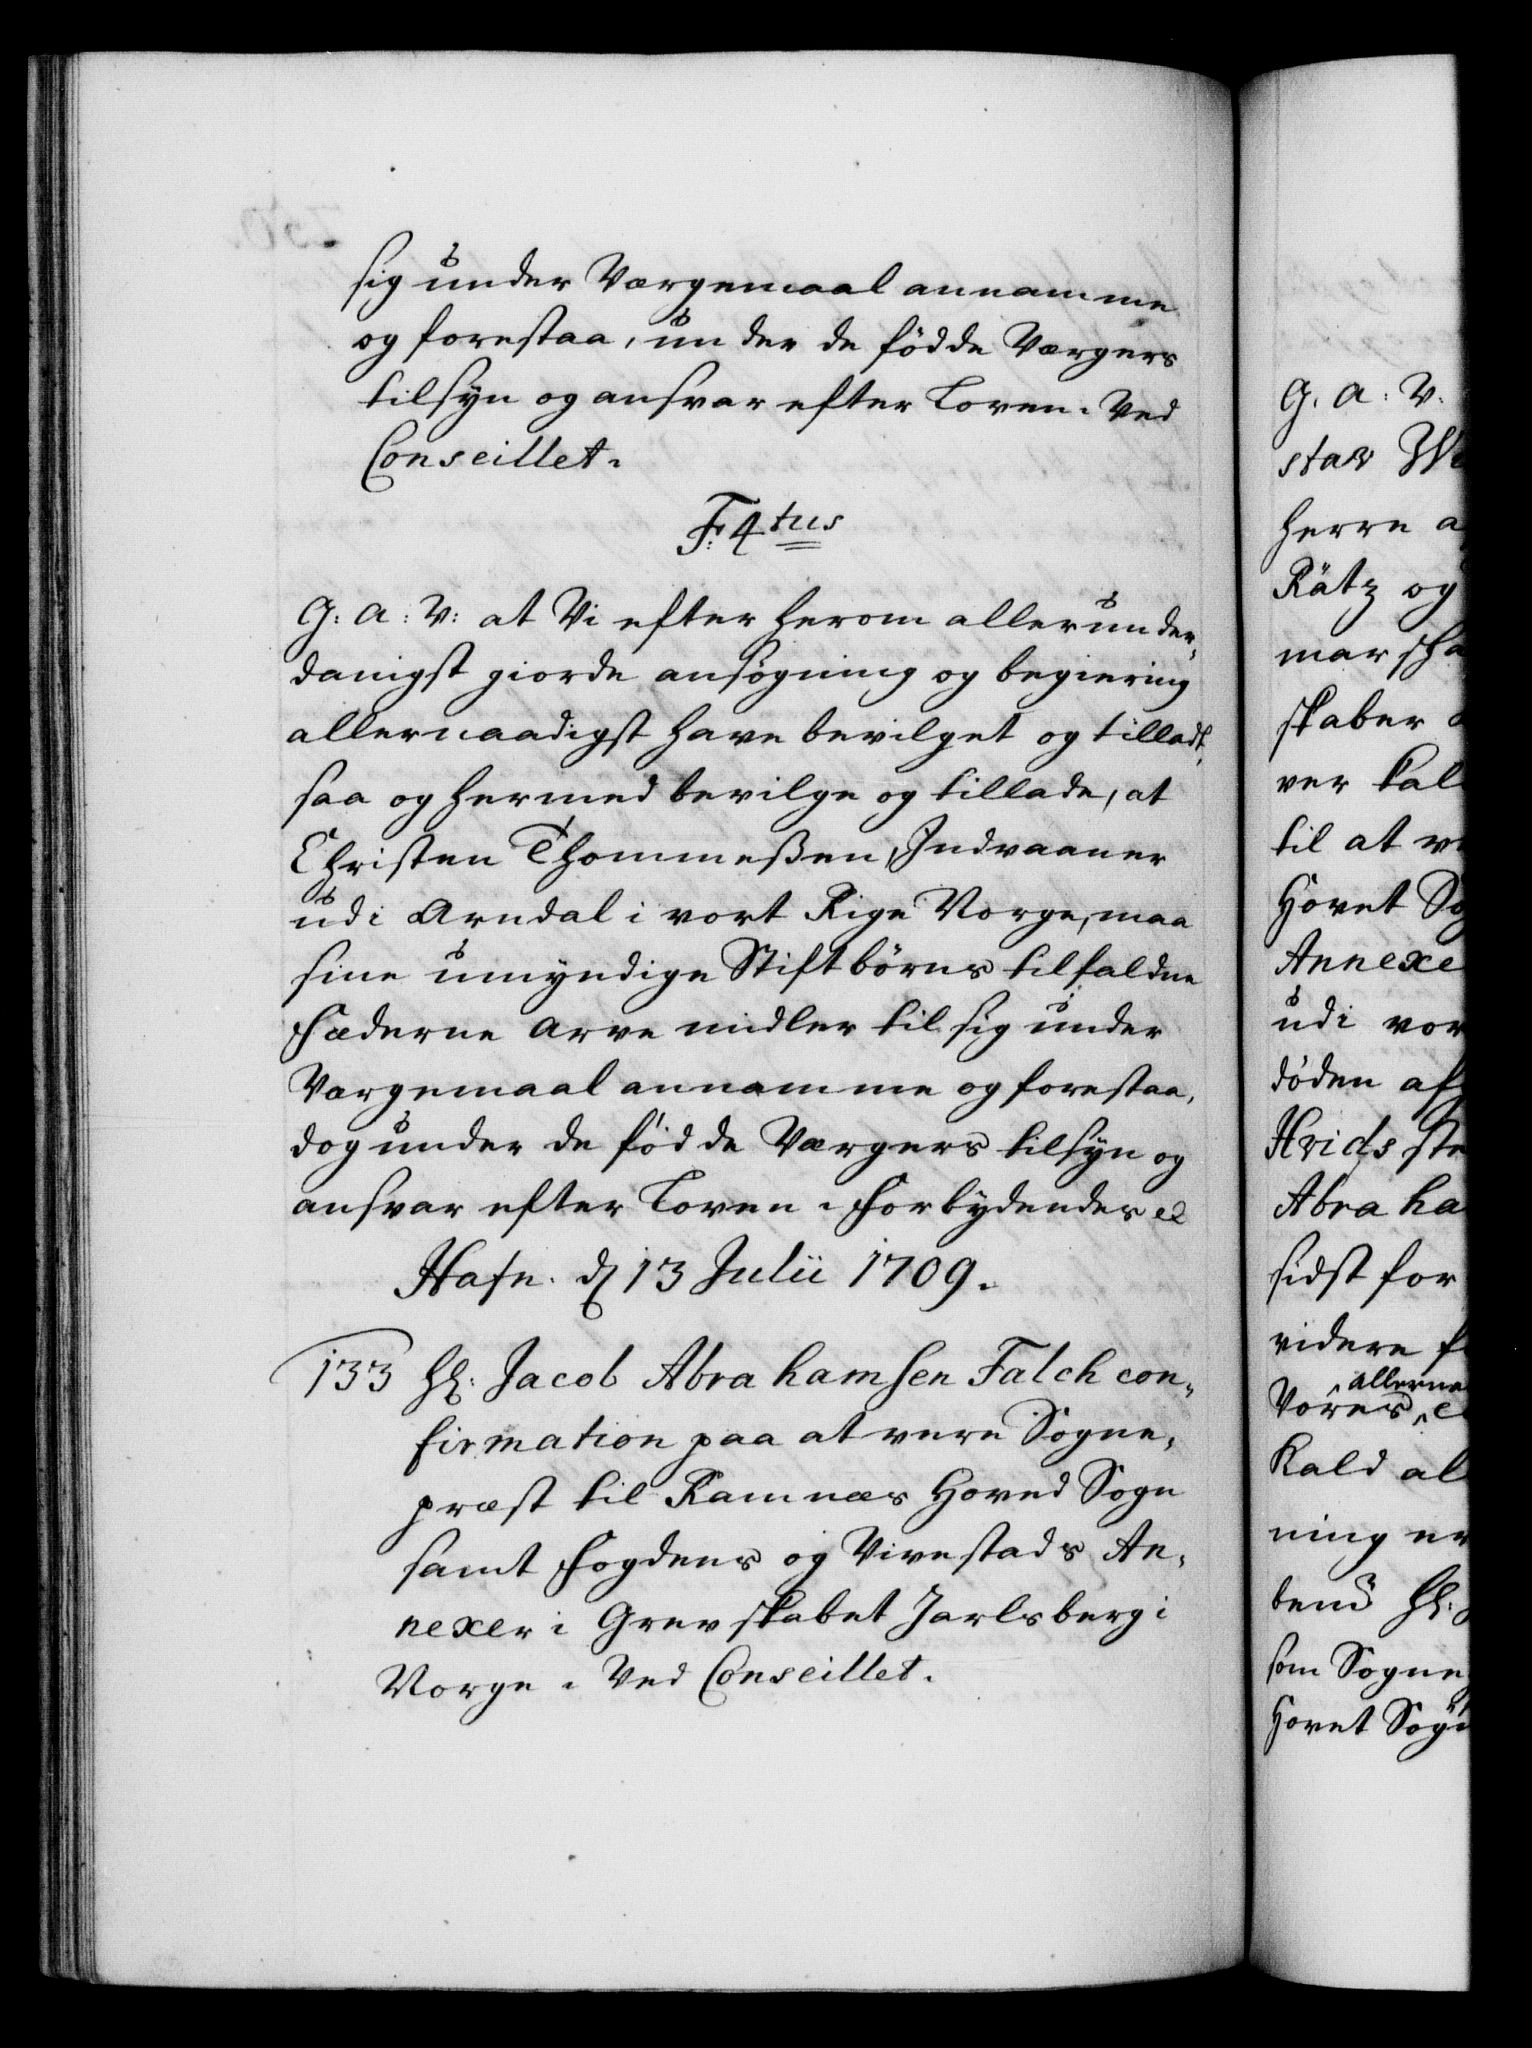 sig under Værgemaal annamme
og forestaa, under de fødde Værgers
tilsyn og ansvar efter Loven. Ved
Conseillet.
F. 4tus
G: A: V: at Vi efter herom allerunder-
danigst giorde ansøgning og begiering
allernaadigst have bevilget og tilladt,
saa og hermed bevilge og tillade, at
Christen Thommeßen, Indvaaner
udi Arndal i vort Rige Norge, maa
sine umyndige Stiftbørns tilfaldne
Fæderne Arve midler til sig under
Værgemaal annamme og forestaa,
dog under de fødde Værgers tilsyn og
ansvar efter Loven. Forbydendes &
Hafn. d 13 Julii 1709.
133 Hr: Jacob Abrahamsen Falch con-
firmation paa at være Sogne-
præst til Ramnæs Hoved Sogn
samt Fogdens og Vivestads An-
nexer i Grevskabet Jarlsberg i
Norge. Ved Conseillet.
G. A: V:
stav
herre
Rätz og
marsha
skaber
ver kal
til at
Hovet So
Annexe
udi vor
døden af
Hvids
Abraha
sidst for
videre
allerna
Vores
Kald al
ning
bem Hr:
som Sogne
Hovet Sogn